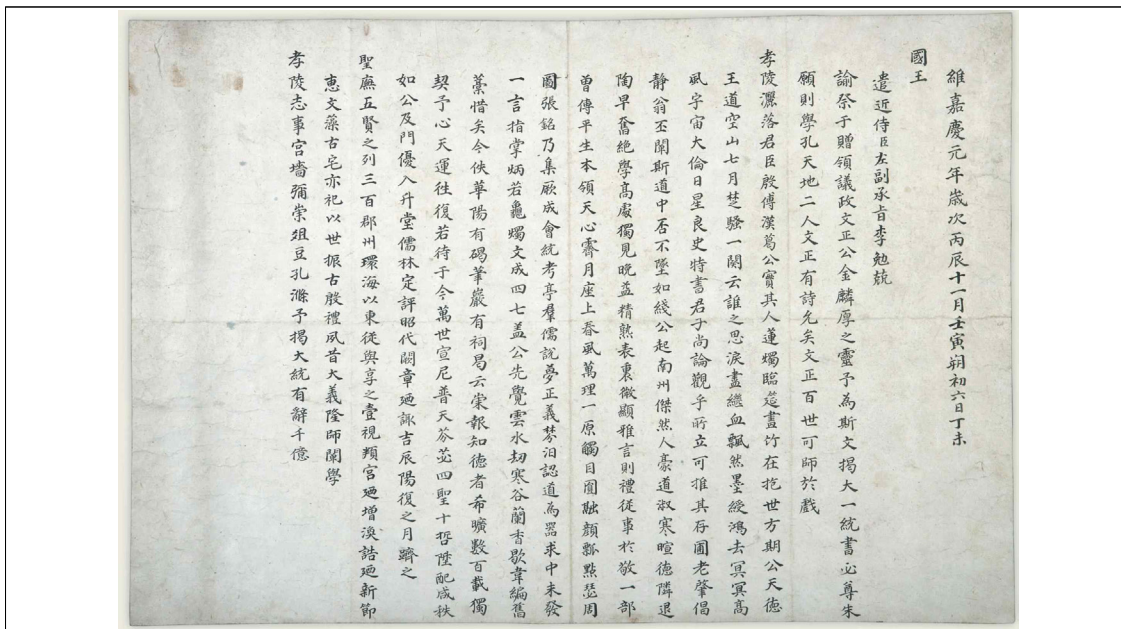 維嘉慶元年歲次丙辰十一月壬寅朔初六日丁未
國王
遣近侍臣左副承旨李勉兢
諭祭于贈領議政文正公金麟厚之靈予為斯文揭大一統書必尊朱
願則學孔天地二人文正有詩允矣文正百世可師於戲
孝陵灑落君臣殷傅漢葛公實其人蓮燭臨筵畫竹在抱世方期公天德
王道空山七月楚騷一闋云誰之思淚盡繼血飄然墨綬鴻去冥冥高
風宇宙大倫日星良史特書君子尚論觀乎所立可推其存圃老肇倡
靜翁丕闡斯道中否不墜如綫公起南州傑然人豪道淑寒暄德隣退
陶早奮絶學高處獨見晚益精熟表裏微顯雅言則禮從事於敬一部
曾傳平生本領天心霽月座上春風萬理一原觸目圓融顔瓢點瑟周
圖張銘乃集厥成會統考亭羣儒說夢正義棼汨認道為器求中未發
一言指掌炳若龜燭文成四七盖公先覺雲水劫寒谷蘭香歇韋編舊
藁惜矣今佚華陽有碣筆巖有祠曷云崇報知德者希曠數百載獨
契予心天運徃復若待于今萬世宣尼普天芬苾四聖十哲陞配咸秩
如公及門優入升堂儒林定評昭代闕章廼諏吉辰陽復之月躋之
聖廡五賢之列三百郡州環海以東從與享之壹視頖宮廼增渙誥廼新節
惠文藻古宅亦祀以世振古殷禮夙昔大義隆師闡學
孝陵志事宮墻彌崇俎豆孔滌予揭大統有辭千億